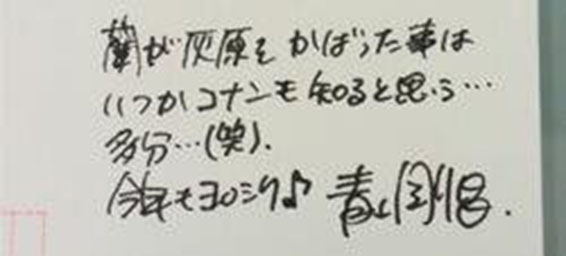 蘭が灰原をかばった事は
いつかコナンも知ると思う…
多分…(笑).
今年もヨロシク♪ 青山剛昌.